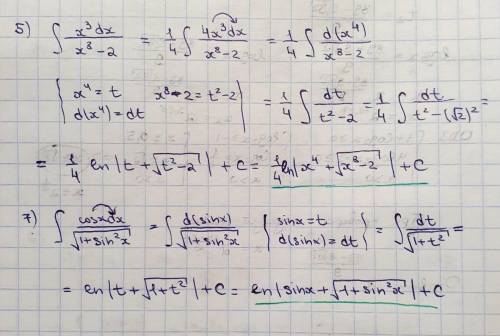 5) ∫ x³dx / (x⁸-2) = 1/4 ∫ 4x³dx / (x⁸-2) = 1/4 ∫ d(x⁴) / (x⁸-2)
{ x⁴ = t  x⁸-2 = t²-2 d(x⁴) = dt } = 1/4 ∫ dt / (t²-2) = 1/4 ∫ dt / (t²-(√2)²) =
= 1/4 ln|t+√(t²-2)| + C = 1/4 ln|x⁴+√(x⁸-2)| + C
7) ∫ cosxdx / √(1+sin²x) = ∫ d(sinx) / √(1+sin²x) { sinx = t d(sinx) = dt } = ∫ dt / √(1+t²) =
= ln|t+√(1+t²)| + C = ln|sinx+√(1+sin²x)| + C